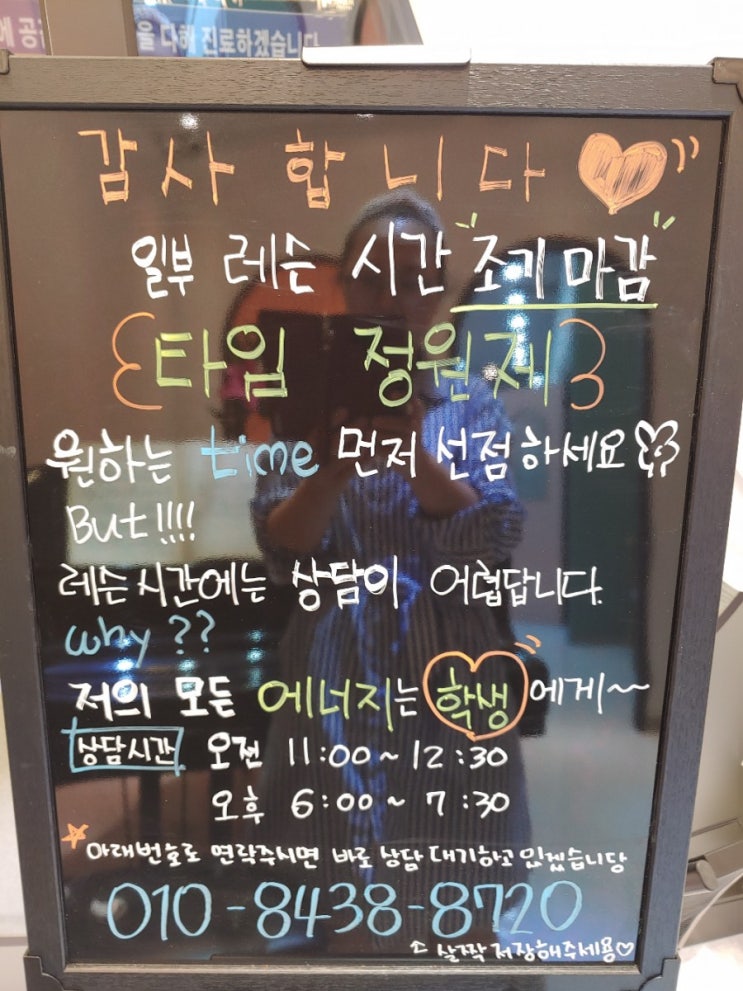 을 다해 진료하겠습니다
감사 합니다
일부 레슨 시간 조기 마감
타임 정원제
원하는 time 먼저 선점하세요
But!!!!
레슨시간에는 상담이 어렵답니다.
why ??
저의 모든 에너지는 학생에게~~
상담시간 오전 11:00~12:30
오후 6:00~7:30
아래번호로 연락주시면 바로 상담 대기하고 있겠습니당
010-8438-8720
살짝 저장해주세용♡